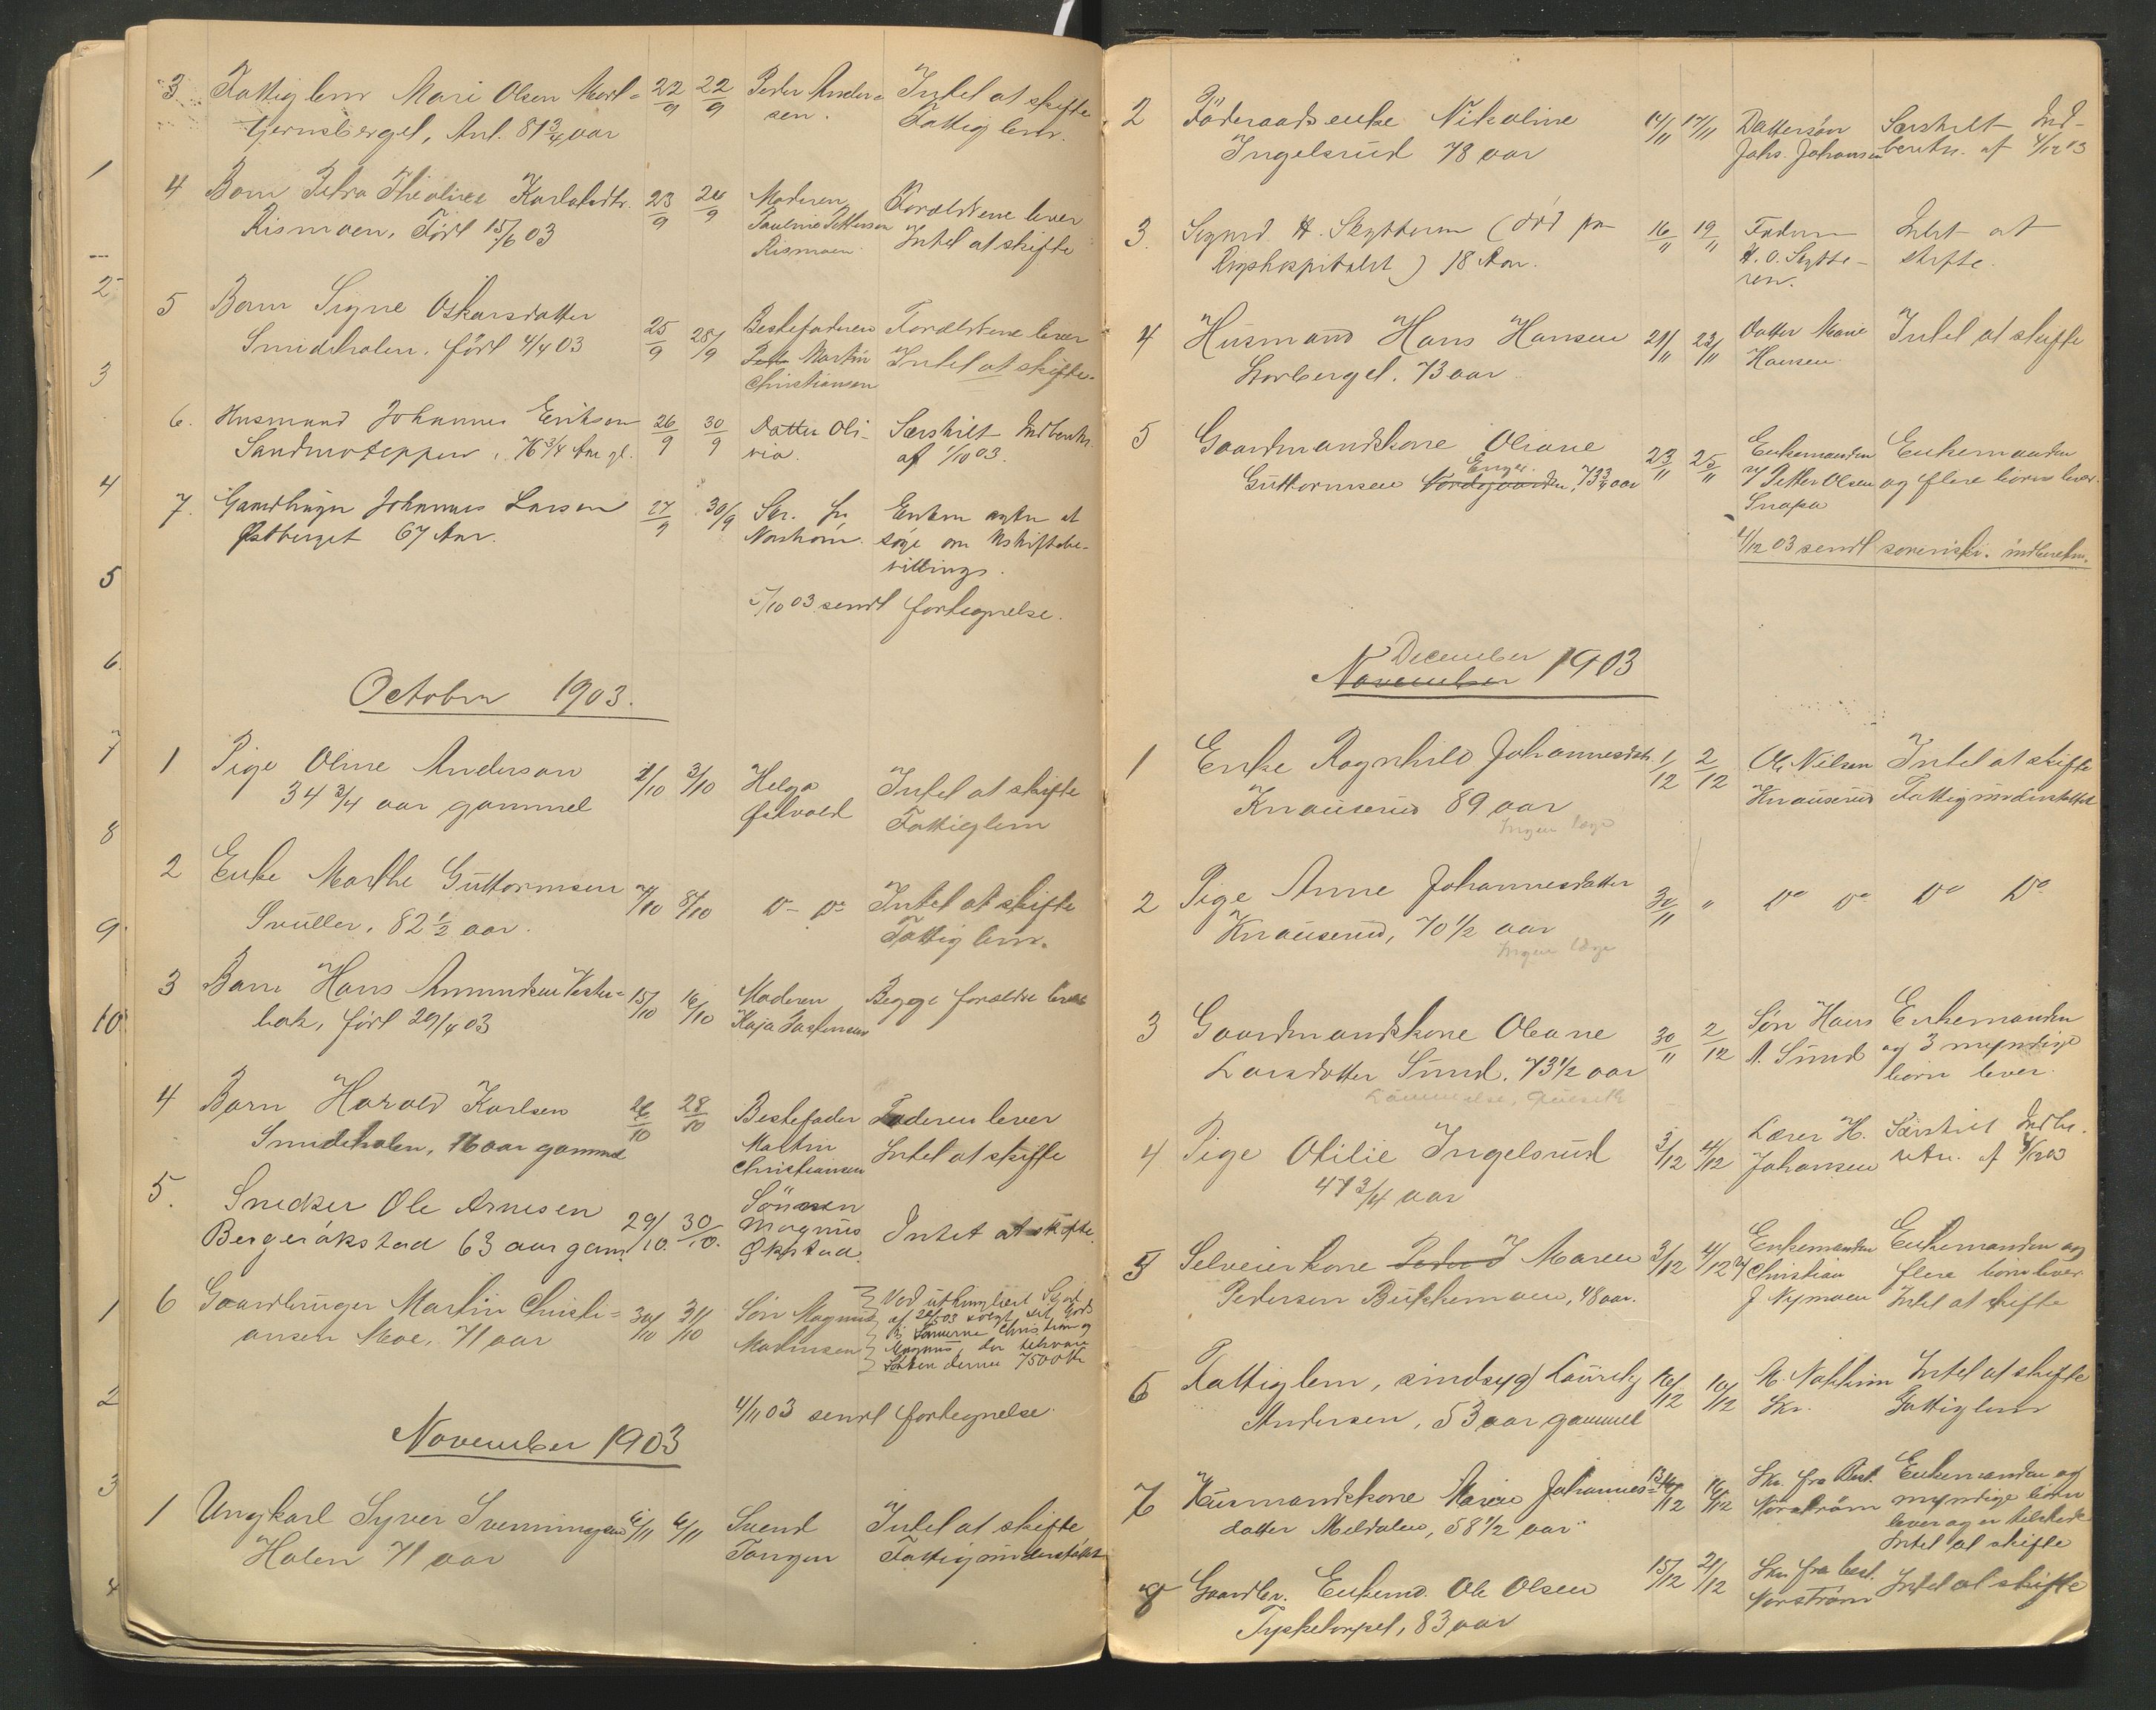 3 Fattiglem Mari Olsen
22/9 22/9 Peder Ander= Intet at skifte
sen. Fattiglem.
Anl. 81 3/4 aar
4 Barn Petra Theoline Karlsdtr. 23/9 24/9 Moderen Forældrene lever
Rismoen. Født 15/6 03 Pauline Pettersen Intet at skifte
Rismoen
5 Barn Signe Oskarsdatter 25/9 28/9 Bestefaderen Forældrene lever
Smideholen, født 4/4 03 Martin Intet at skifte.
Christiansen
6. Husmand Johannes Eriksen 26/9 30/9 Datter Oli- Særskilt Indberetn.
Sandmoteppen, 76 3/4 Aar gl. via. af 1/10 03.
7. Gaardbruger Johannes Larsen 27/9 30/9 Skr. fra Enken agter at
Østberget 67 Aar. Norstrøm. søge om Uskiftebe-
villing.
/10 03 sendt fortegnelse.
October 1903.
1 Pige Oline Anderson 2/10 3/10 Helga Intet at skifte
34 3/4 aar gammel Fattiglem
2 Enke Marthe Guttormsen 7/10 8/10 Do Do Intet at skifte
Svuller, 82 1/2 aar. Fattiglem.
3 Barn Hans Amundsen Vester= 15/10 16/10 Moderen Begge forældre lever
bak, født 29/4 03 Kaja
4 Barn Harald Karlsen 26/10 28/10 Bestefader Faderen lever
Smideholen, 16 aar gammel Martin Intet at skifte
Christiansen
5. Snedker Ole Arnesen 29/10 30/10. Sønnen
Bergeråkstad 63 aar gam. Magnus Intet at skifte.
Økstad.
6 Gaardbruger Martin Christi= 30/10 31/10 Søn Magnus Ved uthinglæst Skjøt
ansen Moe, 71 aar Martinsen af 03 solgt sit Gods
til Sønnerne Christian og
Magnus, der tilsvare
denne 7500 Kr
4/11 03 sendt fortegnelse.
November 1903
1 Ungkarl Syver Svenningsen 6/11 6/11 Svend Intet at skifte
Holen 71 aar Tangen Fattigunderstøttet
2 Føderaadsenke Nikoline 14/11 17/11 Dattersøn Særskilt Ind-
Ingelsrud 78 aar Johs. Johansen beretn. af 4/12 03
3. Sigurd H. Skytteren (død paa 16/11 19/11 Faderen Intet at
Rigshospitalet) 18 Aar. H. O. Skytte- skifte.
ren.
4 Husmand Hans Hansen 21/11 23/11 Datter Marie Intet at skifte
Storberget. 73 aar Hansen
5 Gaardmandskone Oliane 23/11 25/11 Enkemanden Enkemanden
Enger.
Guttormsen Nordgaarden, 73 3/4 aar v/ Petter Olsen og flere børn lever.
Snapa
4/12 03 sendt sorenskr. indberetn.
December
November 1903
1 Enke Ragnhild Johannesdtr. 1/12 2/12 Ole Nilsen Intet at skifte
Knauserud 89 aar Knauserud Fattigunderstøttet
Ingen læge
2 Pige Anne Johannesdatter 30/11 " Do Do Do Do
Knauserud, 70 1/2 aar
Ingen læge
3 Gaardmandskone Oleane 30/11 2/12 Søn Hans Enkemanden
Larsdatter Sund. 73 1/2 aar A. Sund og 3 myndige
børn lever.
4 Pige Otilie Ingelsrud 3/12 4/12 Lærer H. Særskilt Indbe-
47 3/4 aar Johansen retn. af 4/12 03
5 Selveierkone Maren 3/12 4/12 Enkemanden Enkemanden og
Pedersen Bukkemoen, 48 aar. v/ Christian flere børn lever
J Nymoen Intet at skifte
6 Fattiglem, sindsyg Lauritz 10/12 10/12 M. Nohkim Intet at skifte
Andersen, 53 aar gammel Skr. Fattiglem
7 Husmandskone Maren Johannes= 13/12 16/12 Skr. fra Best. Enkemanden og
datter Meldalen, 58 1/2 aar Norstrøm myndige børn
lever og er tilstede
Intet at skifte
8 Gaardbr. Enkemd. Ole Olsen 15/12 21/12 Skr. fra best. Intet at skifte
Tysketorpet, 83 aar Norstrøm
1
2
3
4
5
6
7
8
9
10
1
2
3
4